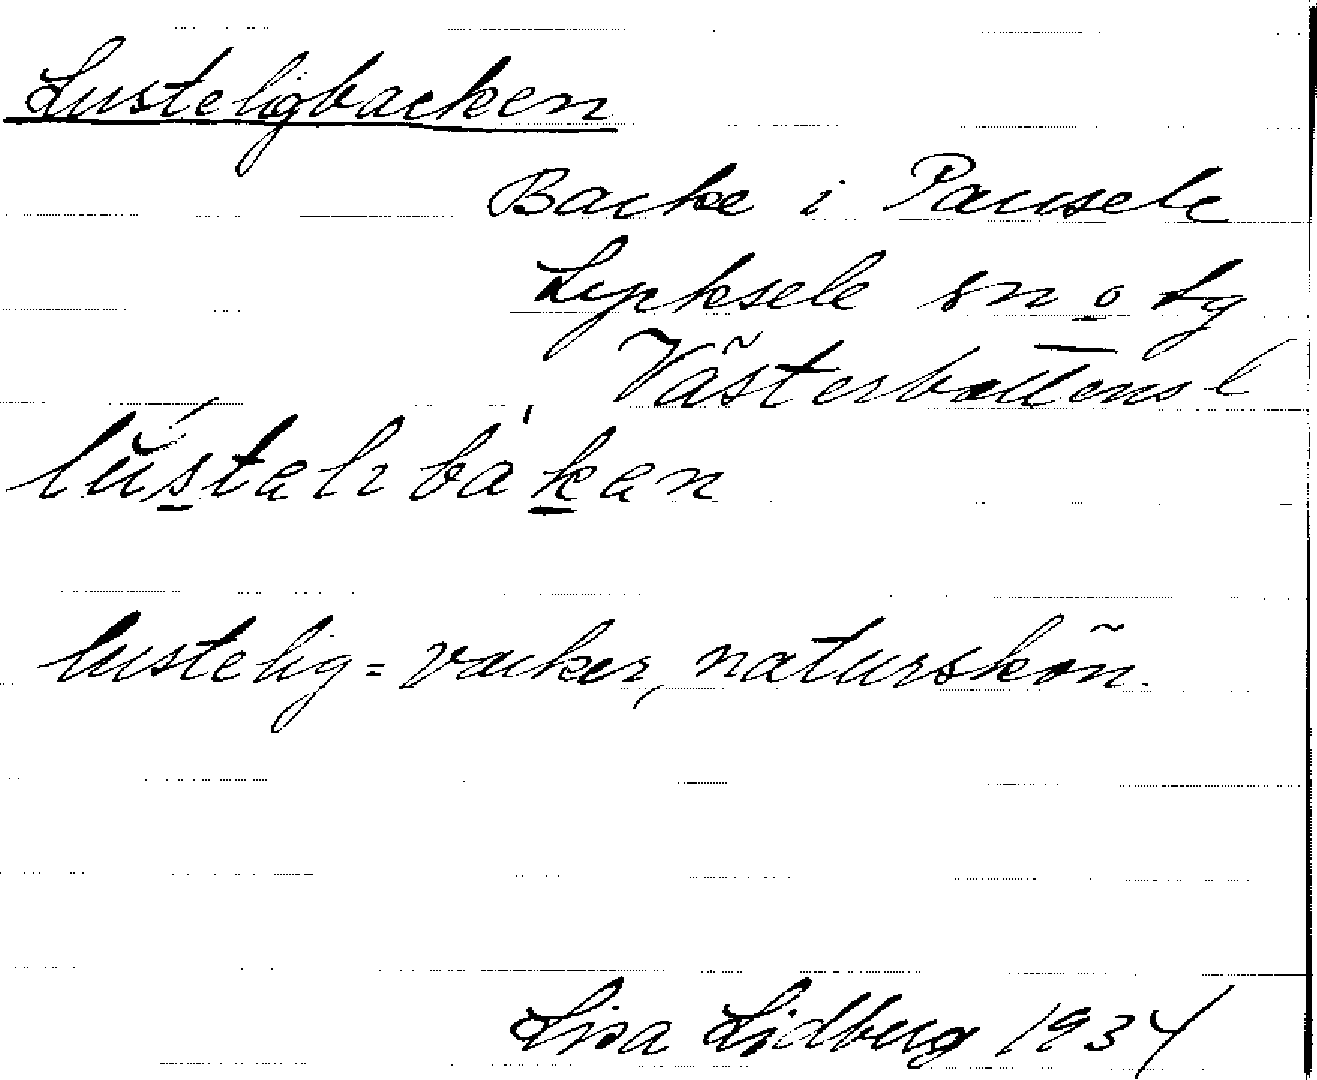 Lusteligbacken
Backe i Pausele
Lycksele sn o tg
Västerbottens l
lustali bakan
lustelig = vacker, naturskön.
Lisa Lidberg 1934